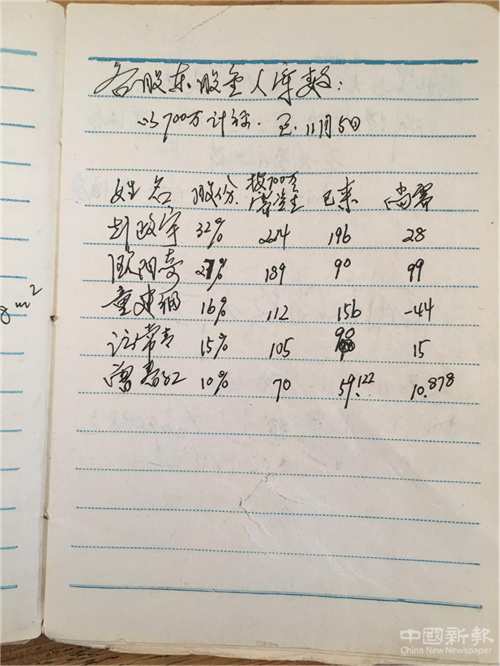 各股东股金入库数:
以700万计标. 至.11月5日
姓名 股份 按700万需资金 已来 尚需
彭政宇 32% 224 196 28
欧阳奇 27% 189 90 99
童建 16% 112 156 -44
常青 15% 105 90 15
曾春红 10% 70 59.122 10.878
8m²
中國新報
China New Newspaper